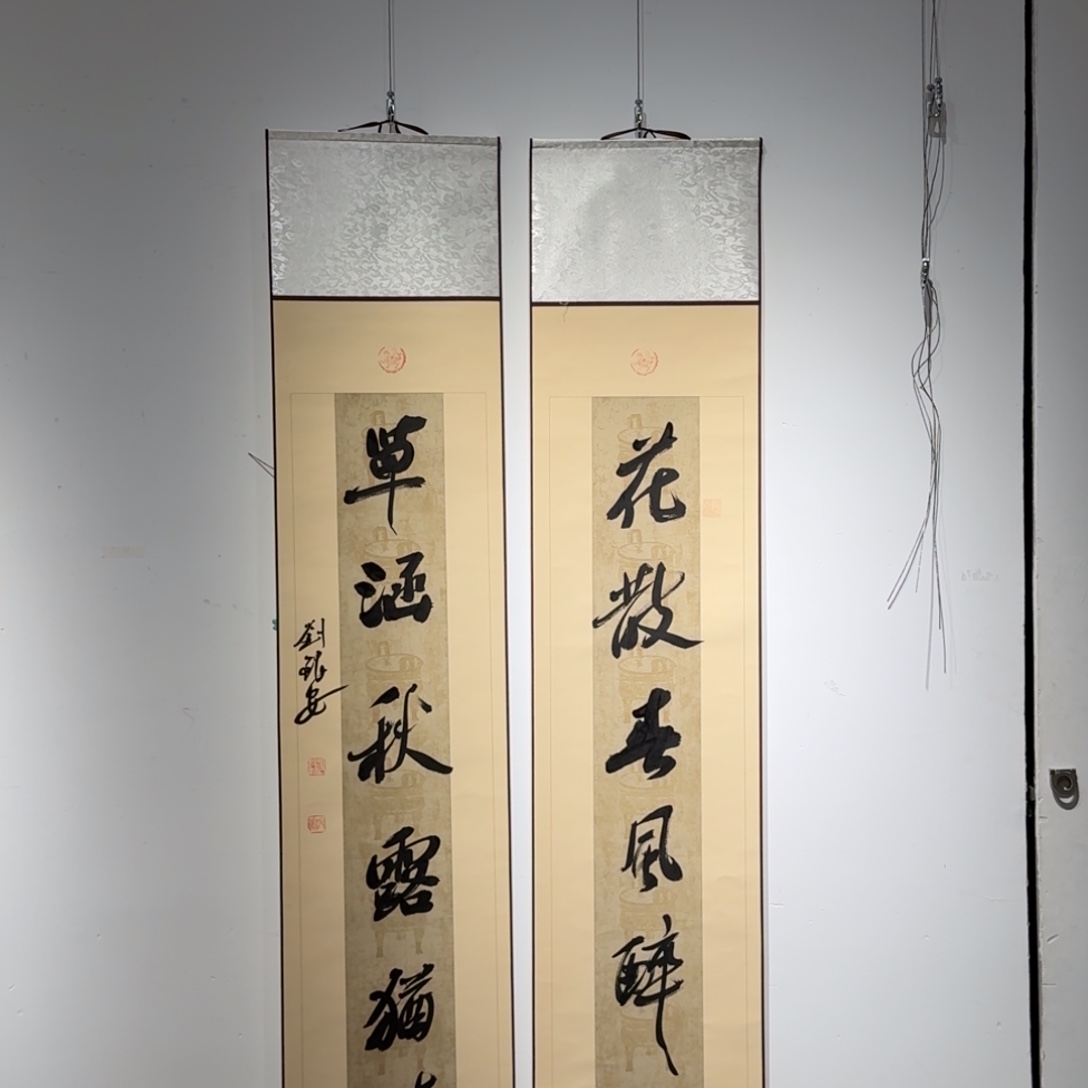 花散春風醉
草涵秋露猶
劉 安